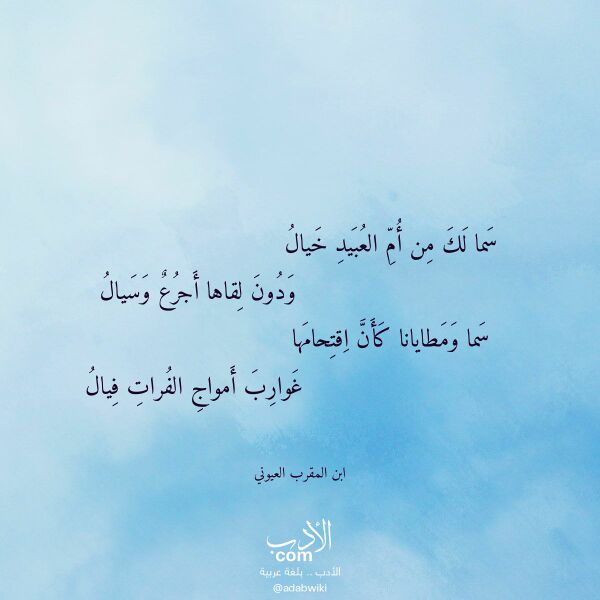 سَما لَكَ مِن أُمِّ العُبَيدِ خَيالُ
وَدُونَ لِقاها أَجرُعٌ وَسَيالُ
سَما وَمَطايانا كَأَنَّ اِقتِحامَها
غَوارِبَ أَمواجِ الفُراتِ فِيالُ
ابن المقرب العيوني
الأدب
com
الأدب .. بلغة عربية
@adabwiki